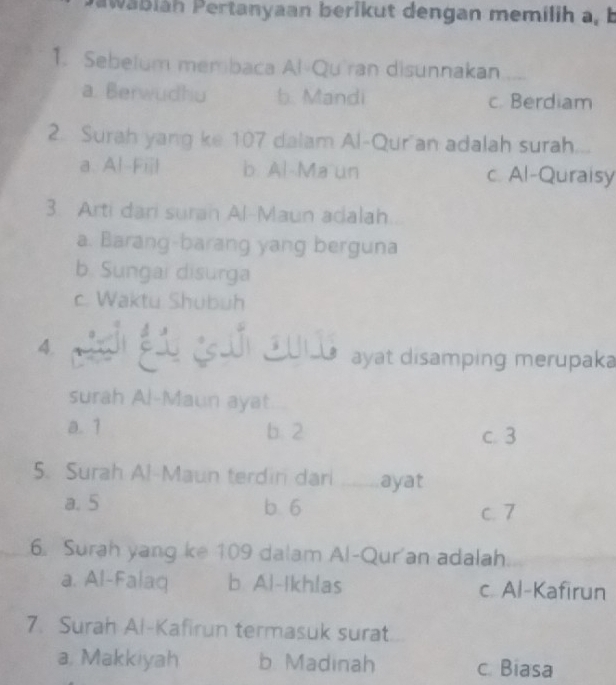 Jawablah Pertanyaan berikut dengan memilih a, b
1. Sebelum membaca Al-Qur'an disunnakan.....
a. Berwudhu b. Mandi c. Berdiam
2. Surah yang ke 107 dalam Al-Qur'an adalah surah...
a. Al-Fiil b. Al-Ma'un c. Al-Quraisy
3. Arti dari surah Al-Maun adalah...
a. Barang-barang yang berguna
b. Sungai disurga
c. Waktu Shubuh
4. فَذَالِكَ الَّذِيْ يَدُعُّ الْيَتِيْمَ ayat disamping merupaka
surah Al-Maun ayat...
a. 1 b. 2 c. 3
5. Surah Al-Maun terdiri dari .......ayat
a. 5 b. 6 c. 7
6. Surah yang ke 109 dalam Al-Qur'an adalah...
a. Al-Falaq b. Al-Ikhlas c. Al-Kafirun
7. Surah Al-Kafirun termasuk surat...
a. Makkiyah b. Madinah c. Biasa